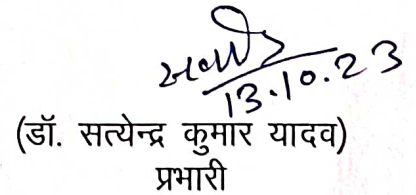 13.10.23
(डॉ. सत्येन्द्र कुमार यादव)
प्रभारी